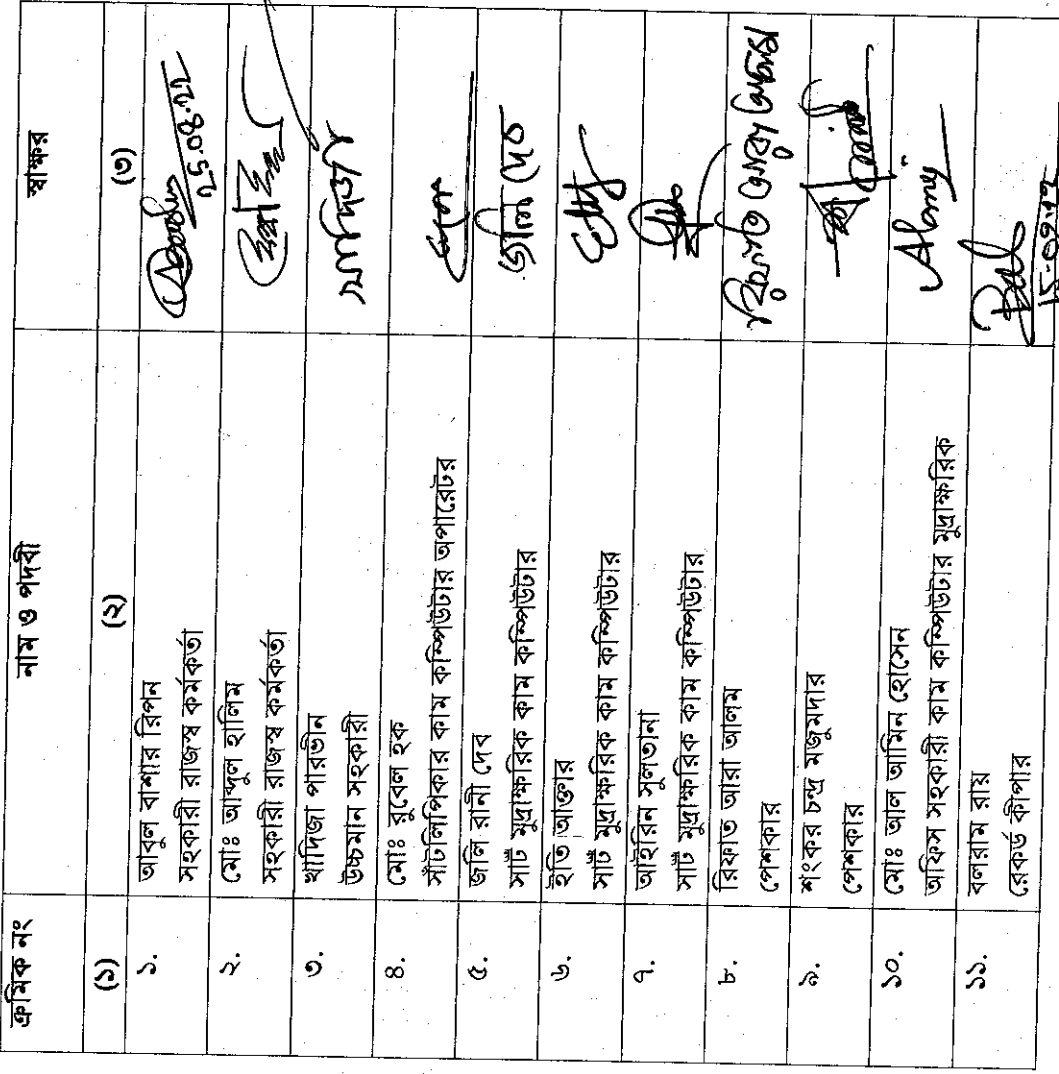 ক্রমিক নং
নাম ও পদবী
স্বাক্ষর
(১)
(২)
(৩)
১.
আবুল বাশার রিপন
সহকারী রাজস্ব কর্মকর্তা
25.08.22
২.
মোঃ আব্দুল হালিম
সহকারী রাজস্ব কর্মকর্তা
৩.
খাদিজা পারভীন
উচ্চমান সহকারী
৪.
মোঃ রুবেল হক
সাঁটলিপিকার কাম কম্পিউটার অপারেটর
৫.
জলি রানী দেব
সাট মুদ্রাক্ষরিক কাম কম্পিউটার
জলি দেব
৬.
ইতি আক্তার
সাট মুদ্রাক্ষরিক কাম কম্পিউটার
৭.
আইরিন সুলতানা
সাট মুদ্রাক্ষরিক কাম কম্পিউটার
৮.
রিফাত আরা আলম
পেশকার
৯.
শংকর চন্দ্র মজুমদার
পেশকার
১০.
মোঃ আল আমিন হোসেন
অফিস সহকারী কাম কম্পিউটার মুদ্রাক্ষরিক
১১.
বলরাম রায়
রেকর্ড কীপার